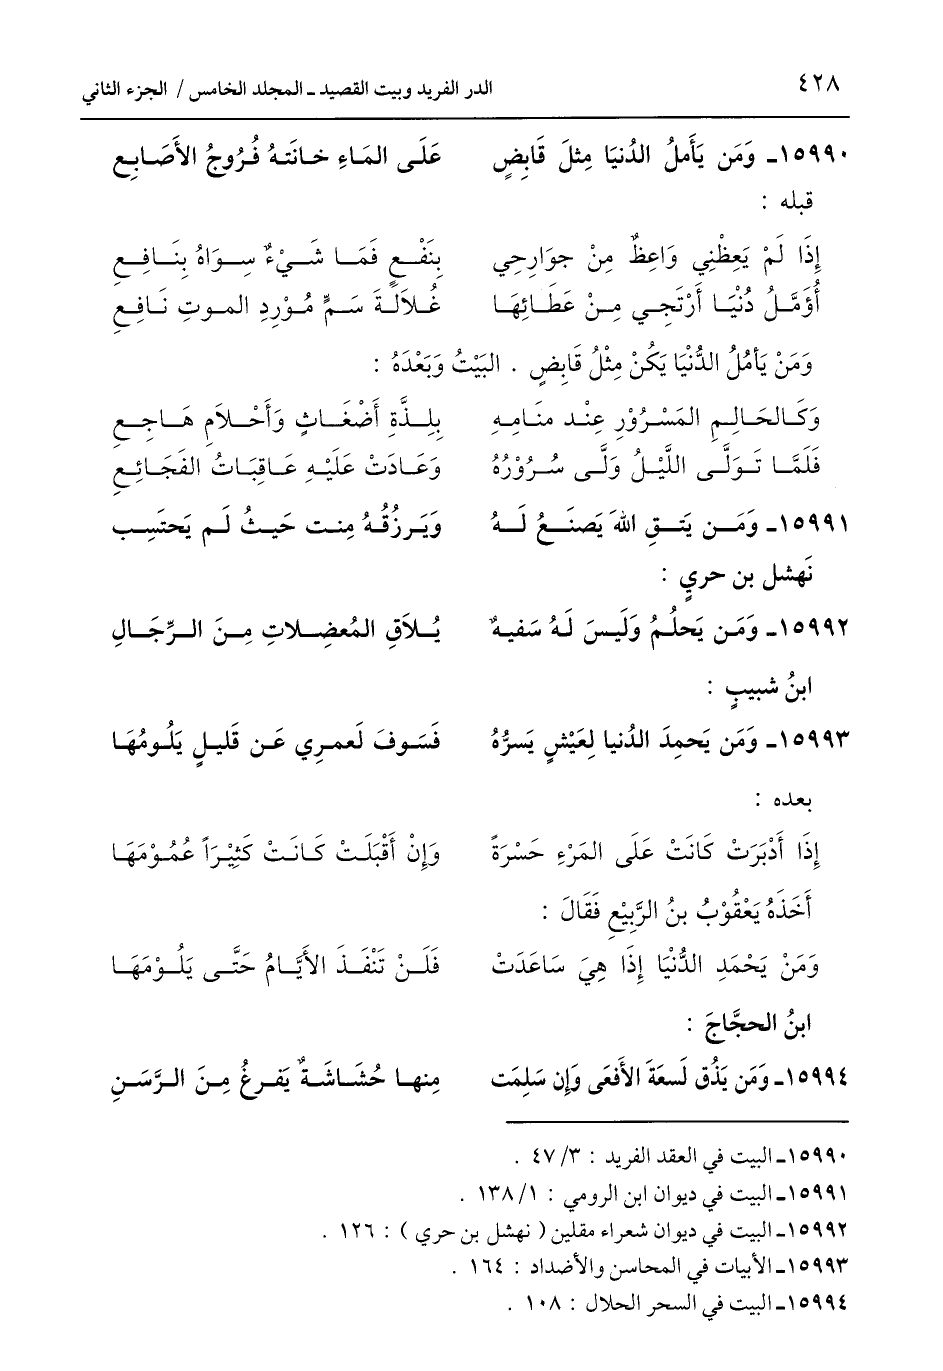 ٤٢٨ الدر الفريد وبيت القصيد ـ المجلد الخامس / الجزء الثاني
١٥٩٩٠ـ وَمَن يَأملُ الدُنيَا مِثلَ قَابِضٍ عَلَى المَاءِ خَانَتهُ فُرُوجُ الأَصَابِعِ
قبله :
إِذَا لَمْ يَعِظْنِي وَاعِظٌ مِنْ جوَارِحِي بِنَفْعٍ فَمَا شَيْءٌ سِوَاهُ بِنَافِعِ
أُؤَمِّلُ دُنْيَا أَرْتَجِي مِنْ عَطَائِهَا غُلاَلَةَ سَمٍّ مُوْرِدِ الموتِ نَافِعِ
وَمَنْ يَأمُلُ الدُّنْيَا يَكُنْ مِثْلُ قَابِضٍ . البَيْتُ وَبَعْدَهُ :
وَكَالحَالِمِ المَسْرُوْرِ عِنْد منَامِهِ بِلِذَّةِ أَضْغَاثٍ وَأَحْلاَمِ هَاجِعِ
فَلَمَّا تَوَلَّى اللَّيْلُ وَلَّى سُرُوْرُهُ وَعَادَتْ عَلَيْهِ عَاقِبَاتُ الفَجَائِعِ
١٥٩٩١ـ وَمَن يَتقِ اللهَ يَصنَعُ لَهُ وَيَرزُقُهُ مِنت حَيثُ لَم يَحتَسِب
نَهشل بن حري :
١٥٩٩٢ـ وَمَن يَحلُمُ وَلَيسَ لَهُ سَفيهٌ يُلاَقِ المُعضِلاتِ مِنَ الرِّجَالِ
ابنُ شبيبٍ :
١٥٩٩٣ـ وَمَن يَحمِدَ الدُنيا لِعَيْشٍ يَسرُّهُ فَسَوفَ لَعمرِي عَن قَليلٍ يَلُومُهَا
بعده :
إِذَا أَدْبَرَتْ كَانَتْ عَلَى المَرْءِ حَسْرَةً وَإِنْ أَقْبَلَتْ كَانَتْ كَثِيْرَاً عُمُوْمَهَا
أَخَذَهُ يَعْقُوْبُ بنُ الرَّبِيْعِ فَقَالَ :
وَمَنْ يَحْمَدِ الدُّنْيَا إِذَا هِيَ سَاعَدَتْ فَلَنْ تَنْفَذَ الأَيَّامُ حَتَّى يَلُوْمَهَا
ابنُ الحجَّاجَ :
١٥٩٩٤ـ وَمَن يَذُق لَسعَةَ الأَفعَى وَإِن سَلِمَت مِنها حُشَاشَةٌ يَفرغُ مِنَ الرَّسَنِ
١٥٩٩٠ـ البيت في العقد الفريد : ٤٧/٣ .
١٥٩٩١ـ البيت في ديوان ابن الرومي : ١٣٨/١ .
١٥٩٩٢ـ البيت في ديوان شعراء مقلين ( نهشل بن حري ) : ١٢٦ .
١٥٩٩٣ـ الأبيات في المحاسن والأضداد : ١٦٤ .
١٥٩٩٤ـ البيت في السحر الحلال : ١٠٨ .